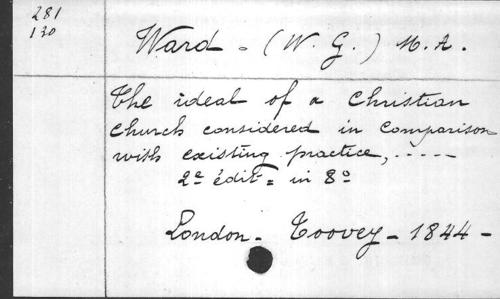 281
130
Ward - (W. G.) M. A.
The ideal of a Christian
Church considered in Comparison
with existing practice, .....
2e édit = in 8o
London - Toovey - 1844 -